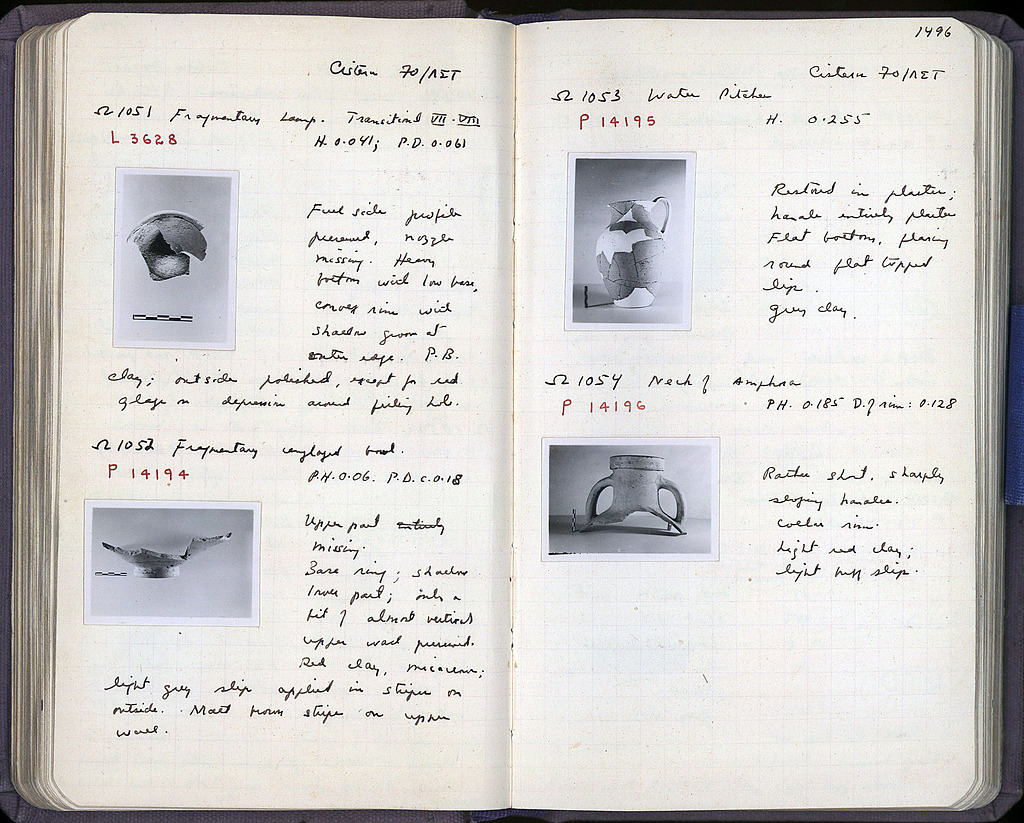 Cistern 70/ΛΣΤ
Ω 1051 Fragmentary Lamp. Transitional VII-VIII
L 3628 H. 0.041; P.D. 0.061
Full side profile
preserved, nozzle
missing. Heavy
bottom with low base,
convex rim with
shallow groove at
outer edge. P.B.
clay; outside polished, except for red
glaze on depression around filling hole.
Ω 1052 Fragmentary unglazed bowl.
P 14194 P.H. 0.06. P.D. c. 0.18
Upper part entirely
missing.
Base ring; shallow
lower part; only a
bit of almost vertical
upper wall preserved.
Red clay, micaceous;
light grey slip applied in stripe on
outside. Matt brown stripe on upper
wall.
1496
Cistern 70/ΛΣΤ
Ω 1053 Water Pitcher
P 14195 H. 0.255
Restored in plaster;
handle entirely plaster
Flat bottom, flaring
round flat topped
lip.
grey clay.
Ω 1054 Neck of Amphora
P 14196 PH. 0.185 D. of rim: 0.128
Rather short, sharply
sloping handles.
Collar rim.
Light red clay;
light buff slip.